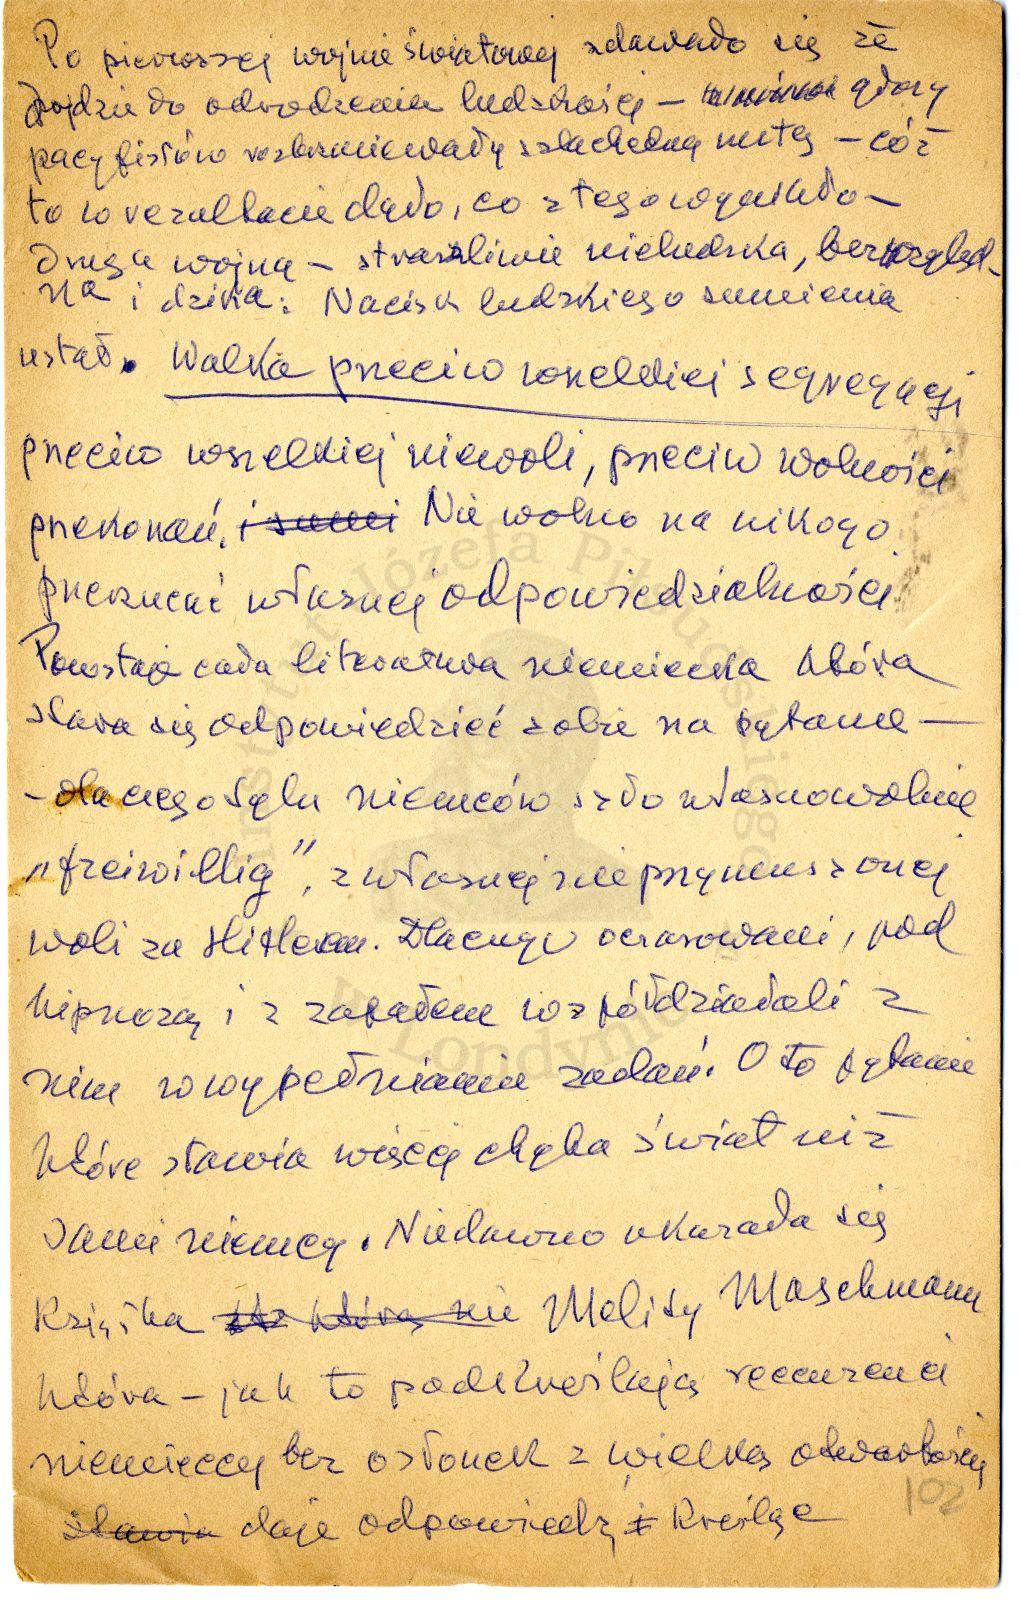 Po pierwszej wojnie światowej zdawało się że
dojdzie do odrodzenia ludzkości — głosy
pacyfistów rozbrzmiewały szlachetną nutą — cóż
to w rezultacie dało, co z tego wynikło —
Druga wojna — straszliwie nieludzka, bezwzględ-
na i dzika. Nacisk ludzkiego sumienia
ustał. Walka przeciw wszelkiej segregacji
przeciw wszelkiej niewoli, przeciw wolności
przekonań. i sumi Nie wolno na nikogo
przerzucać własnej odpowiedzialności
Powstaje cała literatura niemiecka która
stara się odpowiedzieć sobie na pytanie —
— dlaczego tylu niemców szło własnowolnie
„freiwillig”, z własnej nieprzymuszonej
woli za Hitlerem. Dlaczego oczarowani, pod
hipnozą i z zapałem współdziałali z
nim w wypełnianiu zadań. O to pytanie
które stawia więcej chyba świat niż
sami niemcy. Niedawno ukazała się
Książka która nie Melity Maschmann
która — jak to podkreślają recenzenci
niemieccy bez osłonek z wielką otwartością
stawia daje odpowiedź i kreśląc
102
Instytut Józefa Piłsudskiego
w Londynie